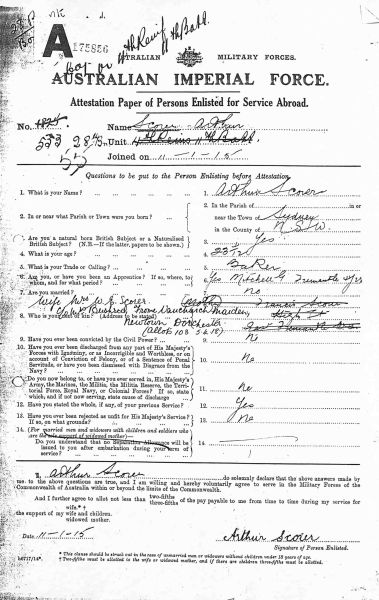 A
175856
AUSTRALIAN MILITARY FORCES.
AUSTRALIAN IMPERIAL FORCE.
Attestation Paper of Persons Enlisted for Service Abroad.
No. Name Scorer Arthur
Unit
Joined on 11-1-15
Questions to be put to the Person Enlisting before Attestation.
1. What is your Name? 1. Arthur Scorer
2. In or near what Parish or Town were you born? 2. In the Parish of in or
near the Town of Sydney
in the County of N.S.W.
3. Are you a natural born British Subject or a Naturalised
British Subject? (N.B.—If the latter, papers to be shown.) 3. Yes
4. What is your age? 4.
5. What is your Trade or Calling? 5. Baker
6. Are you, or have you been an Apprentice? If so, where,
to whom, and for what period? 6. Yes Mitchell Fremantle
7. No
Wife Mrs
8. Who is your next of kin? (Address to be stated)
Newtown Dorchester
9. Have you ever been convicted by the Civil Power? 9. No
10. Have you ever been discharged from any part of His Majesty's
Forces with Ignominy, or as Incorrigible and Worthless, or on
account of Conviction of Felony, or of a Sentence of Penal
Servitude, or have you been dismissed with Disgrace from the
Navy? 10. No
11. Do you now belong to, or have you ever served in, His Majesty's
Army, the Marines, the Militia, the Militia Reserve, the Territorial
Force, Royal Navy, or Colonial Forces? If so, state
which, and if not now serving, state cause of discharge 11. No
12. Have you stated the whole, if any, of your previous Service? 12. Yes
13. Have you ever been rejected as unfit for His Majesty's Service?
If so, on what grounds? 13. No
14. (For married men and widowers with children and soldiers who
are the sole support of widowed mother)—
Do you understand that no Separation Allowance will be
issued to you after embarkation during your term of
service? 14.
I, Arthur Scorer do solemnly declare that the above answers made by
me to the above questions are true, and I am willing and hereby voluntarily agree to serve in the Military Forces of the
Commonwealth of Australia within or beyond the limits of the Commonwealth.
And I further agree to allot not less than two-fifths
three-fifths of the pay payable to me from time to time during my service for
the support of my wife.*
wife and children.
widowed mother.
Date 11-1-15 Arthur Scorer
Signature of Person Enlisted.
* This clause should be struck out in the case of unmarried men or widowers without children under 18 years of age.
Two-fifths must be allotted to the wife, and if there are children three-fifths must be allotted.